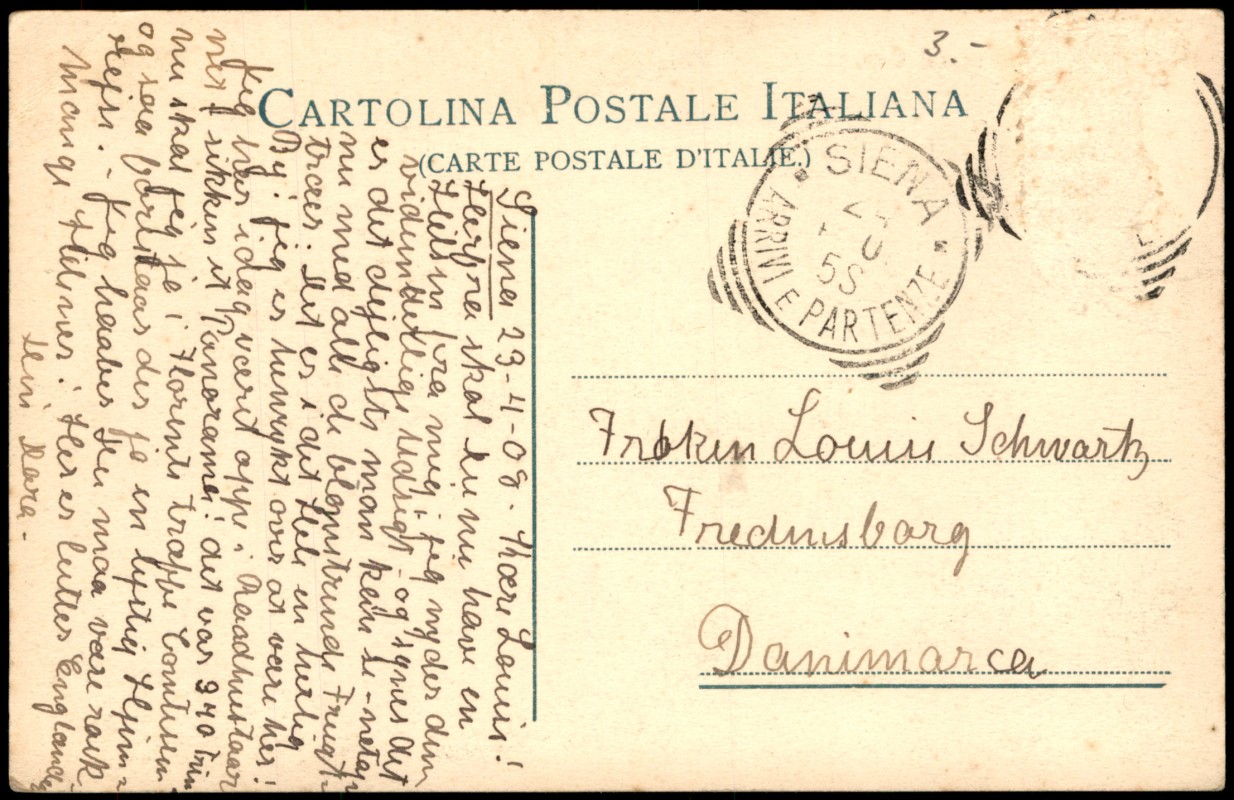 3.-
CARTOLINA POSTALE ITALIANA
(CARTE POSTALE D'ITALIE.)
SIENA
ARRIVI E PARTENZE
Siena 23-4-08. Kære Louise!
Herfra skal Du nu have en
Hilsen fra mig, jeg nyder den
vidunderlige Udsigt og synes det
er det dejligste man kan se - netop
nu med alle de blomstrende Frugt-
træer. Det er i det Hele en herlig
By! jeg er henrykt over at være her!
Jeg har idag været oppe i Raadhustaarn
net sikken et Panorama! det var 340 Trin
nu skal jeg se i Florents trappe
og saa fortsæt der en lystig Hjem-
rejse. - Jeg haaber Du maa være rask
Mange Hilsner! Her er lutter Englænder
Din Nora.
Frøken Louise Schwartz
Fredensborg
Danimarca